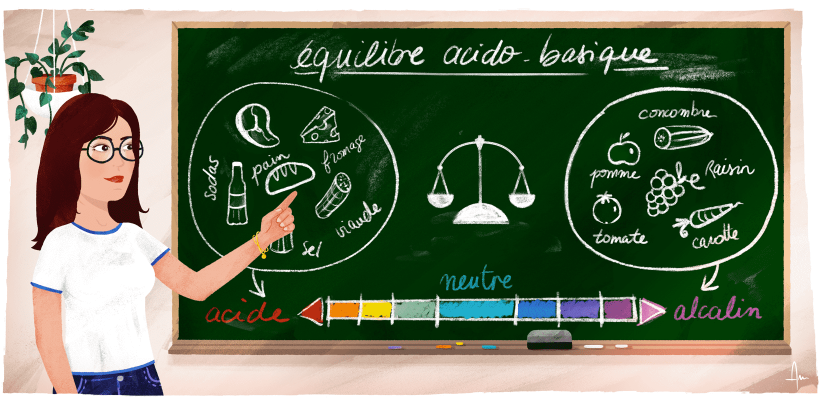 équilibre acido-basique
sodas
pain
fromage
viande
sel
concombre
pomme
Raisin
tomate
carotte
neutre
acide
alcalin